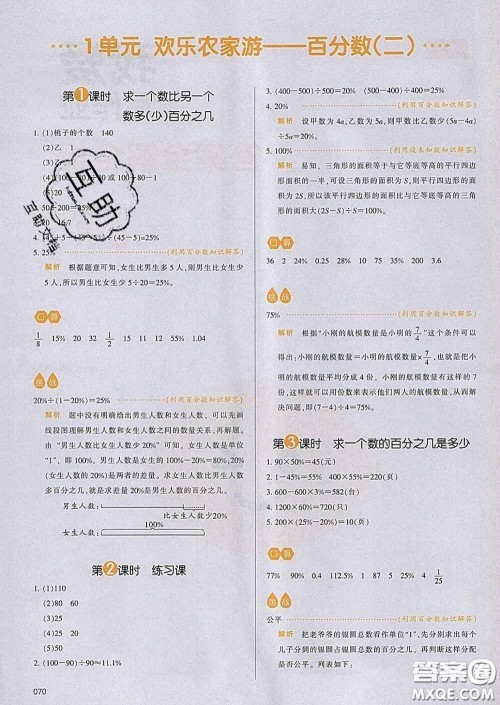 1单元 欢乐农家游——百分数(二)
第1课时 求一个数比另一个
数多(少)百分之几
1. (1)桃子的个数 140
(2)乙 1
(3)乙
5. 25% (利用百分数知识解答)
解析 根据题意可知,女生比男生多5人,则男生比女生少
5人,所以男生比女生少5÷20=25%。
口算
1/8 15% 20 32 1/2 15% 1.04
挑战
20%÷(1-20%)=25% (利用百分数知识解答)
解析 题中没有明确给出男生人数和女生人数,可以先画
线段图理解男生人数和女生人数之间的数量关系,再解
由“男生人数比女生人数少20%”可知,女生人数是单位
“1”,即100%。男生人数是女生的100%-20%=80%,20%
是男生人数与女生人数的差。求女生人数比男生人数多
多百分之几,就是求差量20%是男生人数80%的百分之几。
男生人数:
比女生人数少20%
女生人数: 100%
第2课时 练习课
1. (1)110
(2)20 20
(3)80 80
(4)25 25
(5)60 60
2. (100-90)÷90≈11.1%
3. (400-500)÷500=20% (500-400)÷400=25%
4. 20% (利用百分数知识解答)
解析 设甲数为4a,乙数为5a,则甲数比乙数少(5a-4a)
÷5a=20%。
5. 100% (利用设未知数知识解答)
解析 易知,三角形的面积等于与它等底等高的平行四边
形面积的一半,可设三角形的面积为S,则平行四边形的面
积为2S,所以该平行四边形的面积比与它等底等高的三角
形的面积大(2S-S)÷S=100%。
口算
36 2 24% 0.25 28% 10 75% 35% 75%
挑战
75% (利用百分数知识解答)
解析 根据“小刚的航模数量是小明的7/4”这个条件可以
得出:小刚的航模数量=小明的航模数量×7/4,即把小明的
航模数量平均分成4份,小刚的航模数量有这样的7份,
这样就可以用份数来计算他们两人的航模数量,从而解
决问题,即(7-4)÷4=75%。
第3课时 求一个数的百分之几是多少
1. 90×50%=45(元)
2. 150×45%×40%=27(页)
3. 600-600×3%=582(台)
4. 1200×10%×60%=720(元)
5. 200×(25%-20%)=10(页)
口算
77% 90% 0.4 112% 120% 3 40% 4 1/25
挑战
公平 (利用百分数知识解答)
解析 把老爷爷的银圆总数看作单位“1”,先求出每个
儿子分到的银圆占银圆总数的百分之几,再判断这样分
是否公平。
070
互助
互助文档
答案圈
MXQE.COM